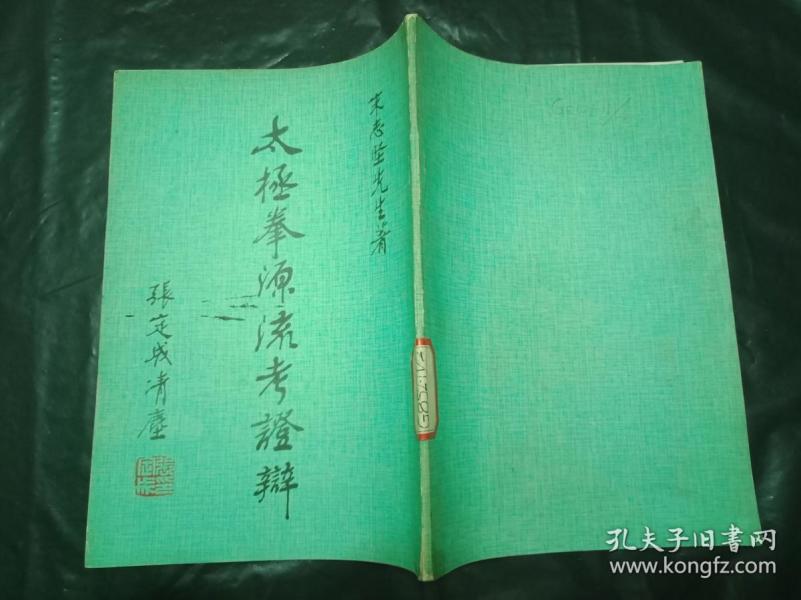 宋志坚先生著
太極拳源流考證辯
張定成清塵
G852.11/2
孔夫子旧书网
www.kongfz.com